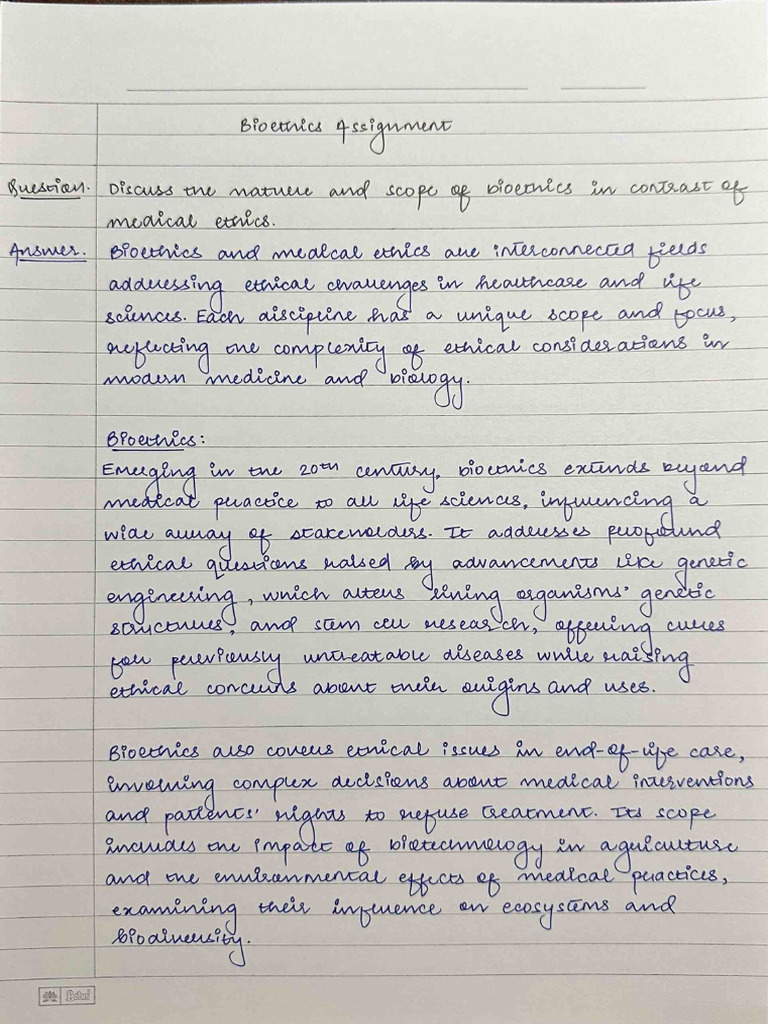 Bioethics Assignment
Question. Discuss the nature and scope of bioethics in contrast of
medical ethics.
Answer. Bioethics and medical ethics are interconnected fields
addressing ethical challenges in healthcare and life
sciences. Each discipline has a unique scope and focus,
reflecting the complexity of ethical considerations in
modern medicine and biology.
Bioethics:
Emerging in the 20th century, bioethics extends beyond
medical practice to all life sciences, influencing a
wide array of stakeholders. It addresses profound
ethical questions raised by advancements like genetic
engineering, which alters living organisms' genetic
structures, and stem cell research, offering cures
for previously untreatable diseases while raising
ethical concerns about their origins and uses.
Bioethics also covers ethical issues in end-of-life care,
involving complex decisions about medical interventions
and patients' rights to refuse treatment. Its scope
includes the impact of biotechnology in agriculture
and the environmental effects of medical practices,
examining their influence on ecosystems and
biodiversity.